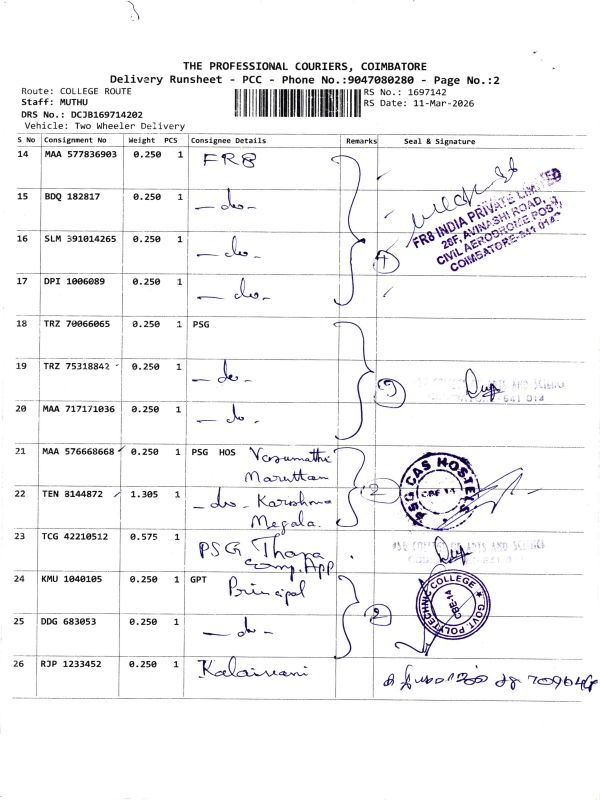 THE PROFESSIONAL COURIERS, COIMBATORE
Delivery Runsheet - PCC - Phone No.:9047080280 - Page No.:2
Route: COLLEGE ROUTE
Staff: MUTHU
DRS No.: DCJB169714202
Vehicle: Two Wheeler Delivery
RS No.: 1697142
RS Date: 11-Mar-2026
S No Consignment No Weight PCS Consignee Details Remarks Seal & Signature
14 MAA 577836903 0.250 1 FR8
15 BDQ 182817 0.250 1 - do -
16 SLM 391014265 0.250 1 - do -
17 DPI 1006089 0.250 1 - do -
4
FR8 INDIA PRIVATE LIMITED
26F, AVINASHI ROAD,
CIVIL AERODROME POST,
COIMBATORE-641 014
18 TRZ 70066065 0.250 1 PSG
19 TRZ 75318842 0.250 1 - do -
20 MAA 717171036 0.250 1 - do -
3
PSG COLLEGE OF ARTS AND SCIENCE
641 014
21 MAA 576668668 0.250 1 PSG HOS Vasumathi
Maruttam
22 TEN 8144872 1.305 1 - do - Karishma
Megala.
2
PSG CAS HOSTELS
CBE 14
23 TCG 42210512 0.575 1 PSG Thana
Comp. App
PSG COLLEGE OF ARTS AND SCIENCE
24 KMU 1040105 0.250 1 GPT Principal
25 DDG 683053 0.250 1 - do -
2
GOVT. POLYTECHNIC COLLEGE
CBE-14
26 RJP 1233452 0.250 1 Kalaivani